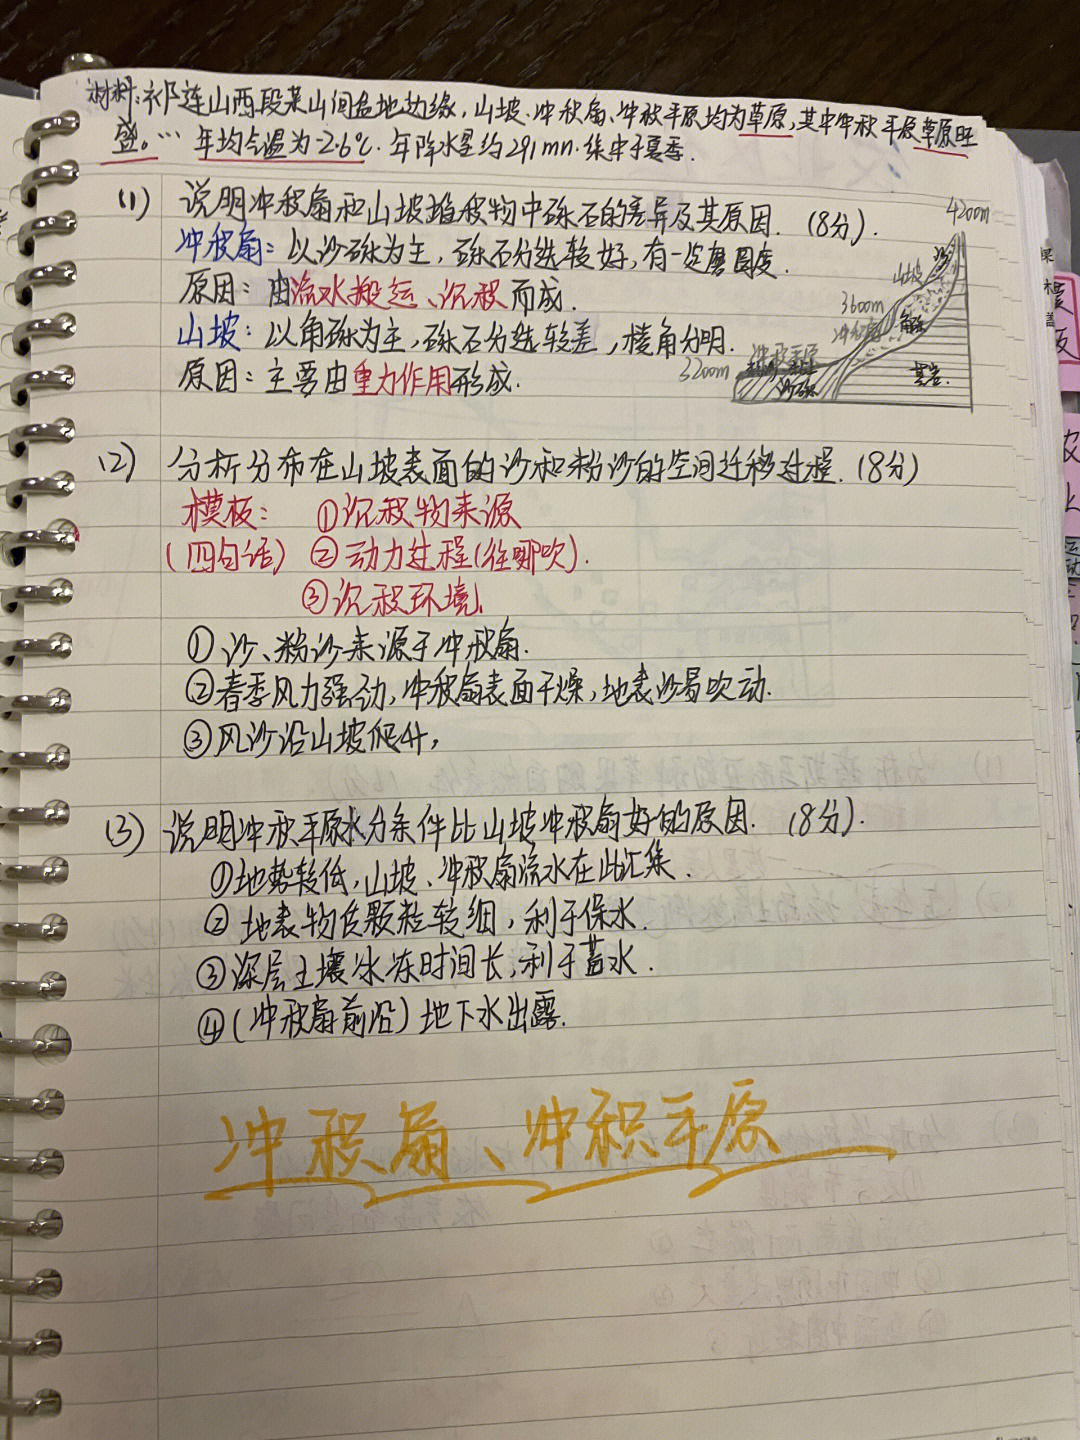 材料:祁连山西段某山间盆地边缘,山坡、冲积扇、冲积平原均为草原,其中冲积平原草原旺
盛。… 年均气温为-2.6℃.年降水量约291mm.集中于夏季.
(1) 说明冲积扇和山坡堆积物中砾石的差异及其原因. (8分).
冲积扇:以沙砾为主,砾石分选较好,有一定磨圆度.
原因:由流水搬运、沉积而成.
山坡:以角砾为主,砾石分选较差,棱角分明.
原因:主要由重力作用形成.
4200m
山坡
沙
3600m
冲积扇
角砾
冲积平原
3200m
沙砾
基岩.
(2) 分析分布在山坡表面的沙和粉沙的空间迁移过程.(8分)
模板: ①沉积物来源
(四句话) ②动力过程(往哪吹).
③沉积环境
①沙、粉沙来源于冲积扇.
②春季风力强劲,冲积扇表面干燥,地表沙易吹动.
③风沙沿山坡爬升,
(3) 说明冲积平原水分条件比山坡冲积扇好的原因. (8分).
①地势较低,山坡、冲积扇流水在此汇集.
② 地表物质颗粒较细,利于保水.
③深层土壤冰冻时间长,利于蓄水.
④(冲积扇前沿)地下水出露.
冲积扇、冲积平原